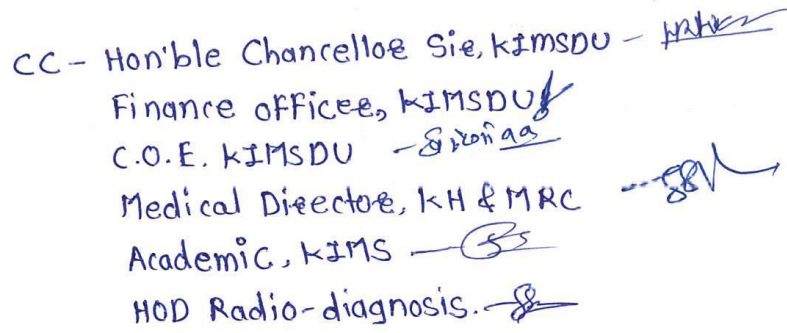 CC - Hon'ble Chancellor Sir, KIMSDU -
Finance officer, KIMSDU
C.O.E. KIMSDU -
Medical Director, KH & MRC ---
Academic, KIMS -
HOD Radio-diagnosis. -